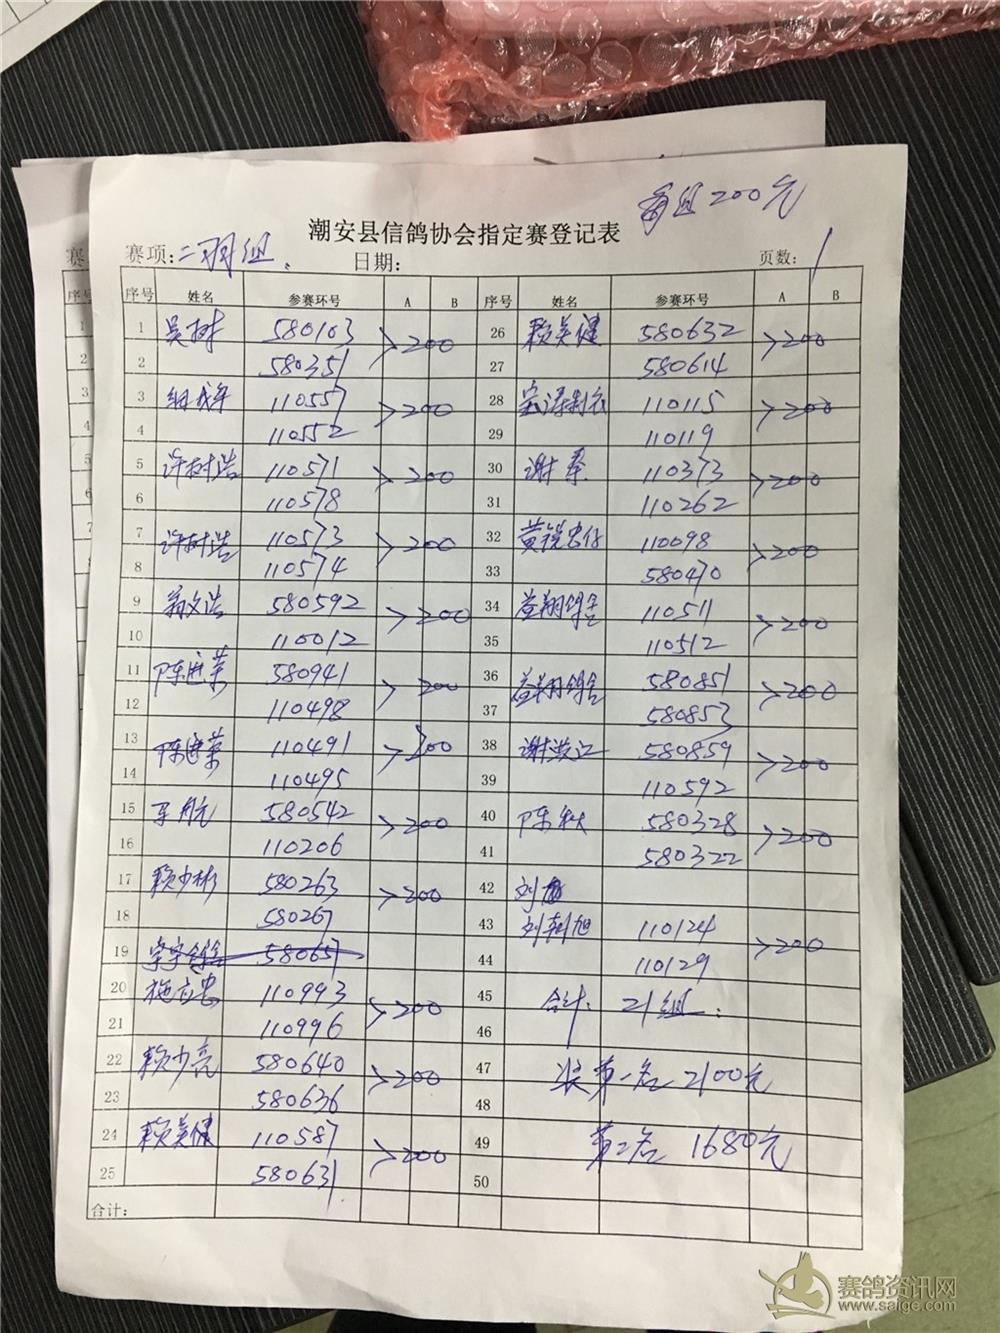 每组200元
潮安县信鸽协会指定赛登记表
赛项:二羽组. 日期: 页数: 1
序号 姓名 参赛环号 A B 序号 姓名 参赛环号 A B
1 吴树 580103 >200 26 赖英健 580632 >200
2 580351 27 580614
3 110557 >200 28 110115 >200
4 110552 29 110119
5 许树浩 110571 >200 30 谢桑 110373 >200
6 110578 31 110262
7 许树浩 110573 >200 32 黄锐忠仔 110098 >200
8 110574 33 580470
9 翁文浩 580592 >200 34 益翔鸽舍 110511 >200
10 110012 35 110512
11 陈进荣 580941 >200 36 益翔鸽舍 580851 >200
12 110498 37 580853
13 陈进荣 110491 >200 38 580859 >200
14 110495 39 110592
15 580542 >200 40 陈秋 580328 >200
16 110206 41 580322
17 赖少彬 580263 >200 42 刘
18 580267 43 刘朝旭 110124 >200
19 580657 44 110129
20 施应忠 110993 >200 45 合计: 21组.
21 110996 46
22 赖少亮 580640 >200 47 奖第一名2100元
23 580636 48
24 赖英健 110587 >200 49 第二名 1680元
25 580631 50
合计:
赛鸽资讯网
www.saige.com